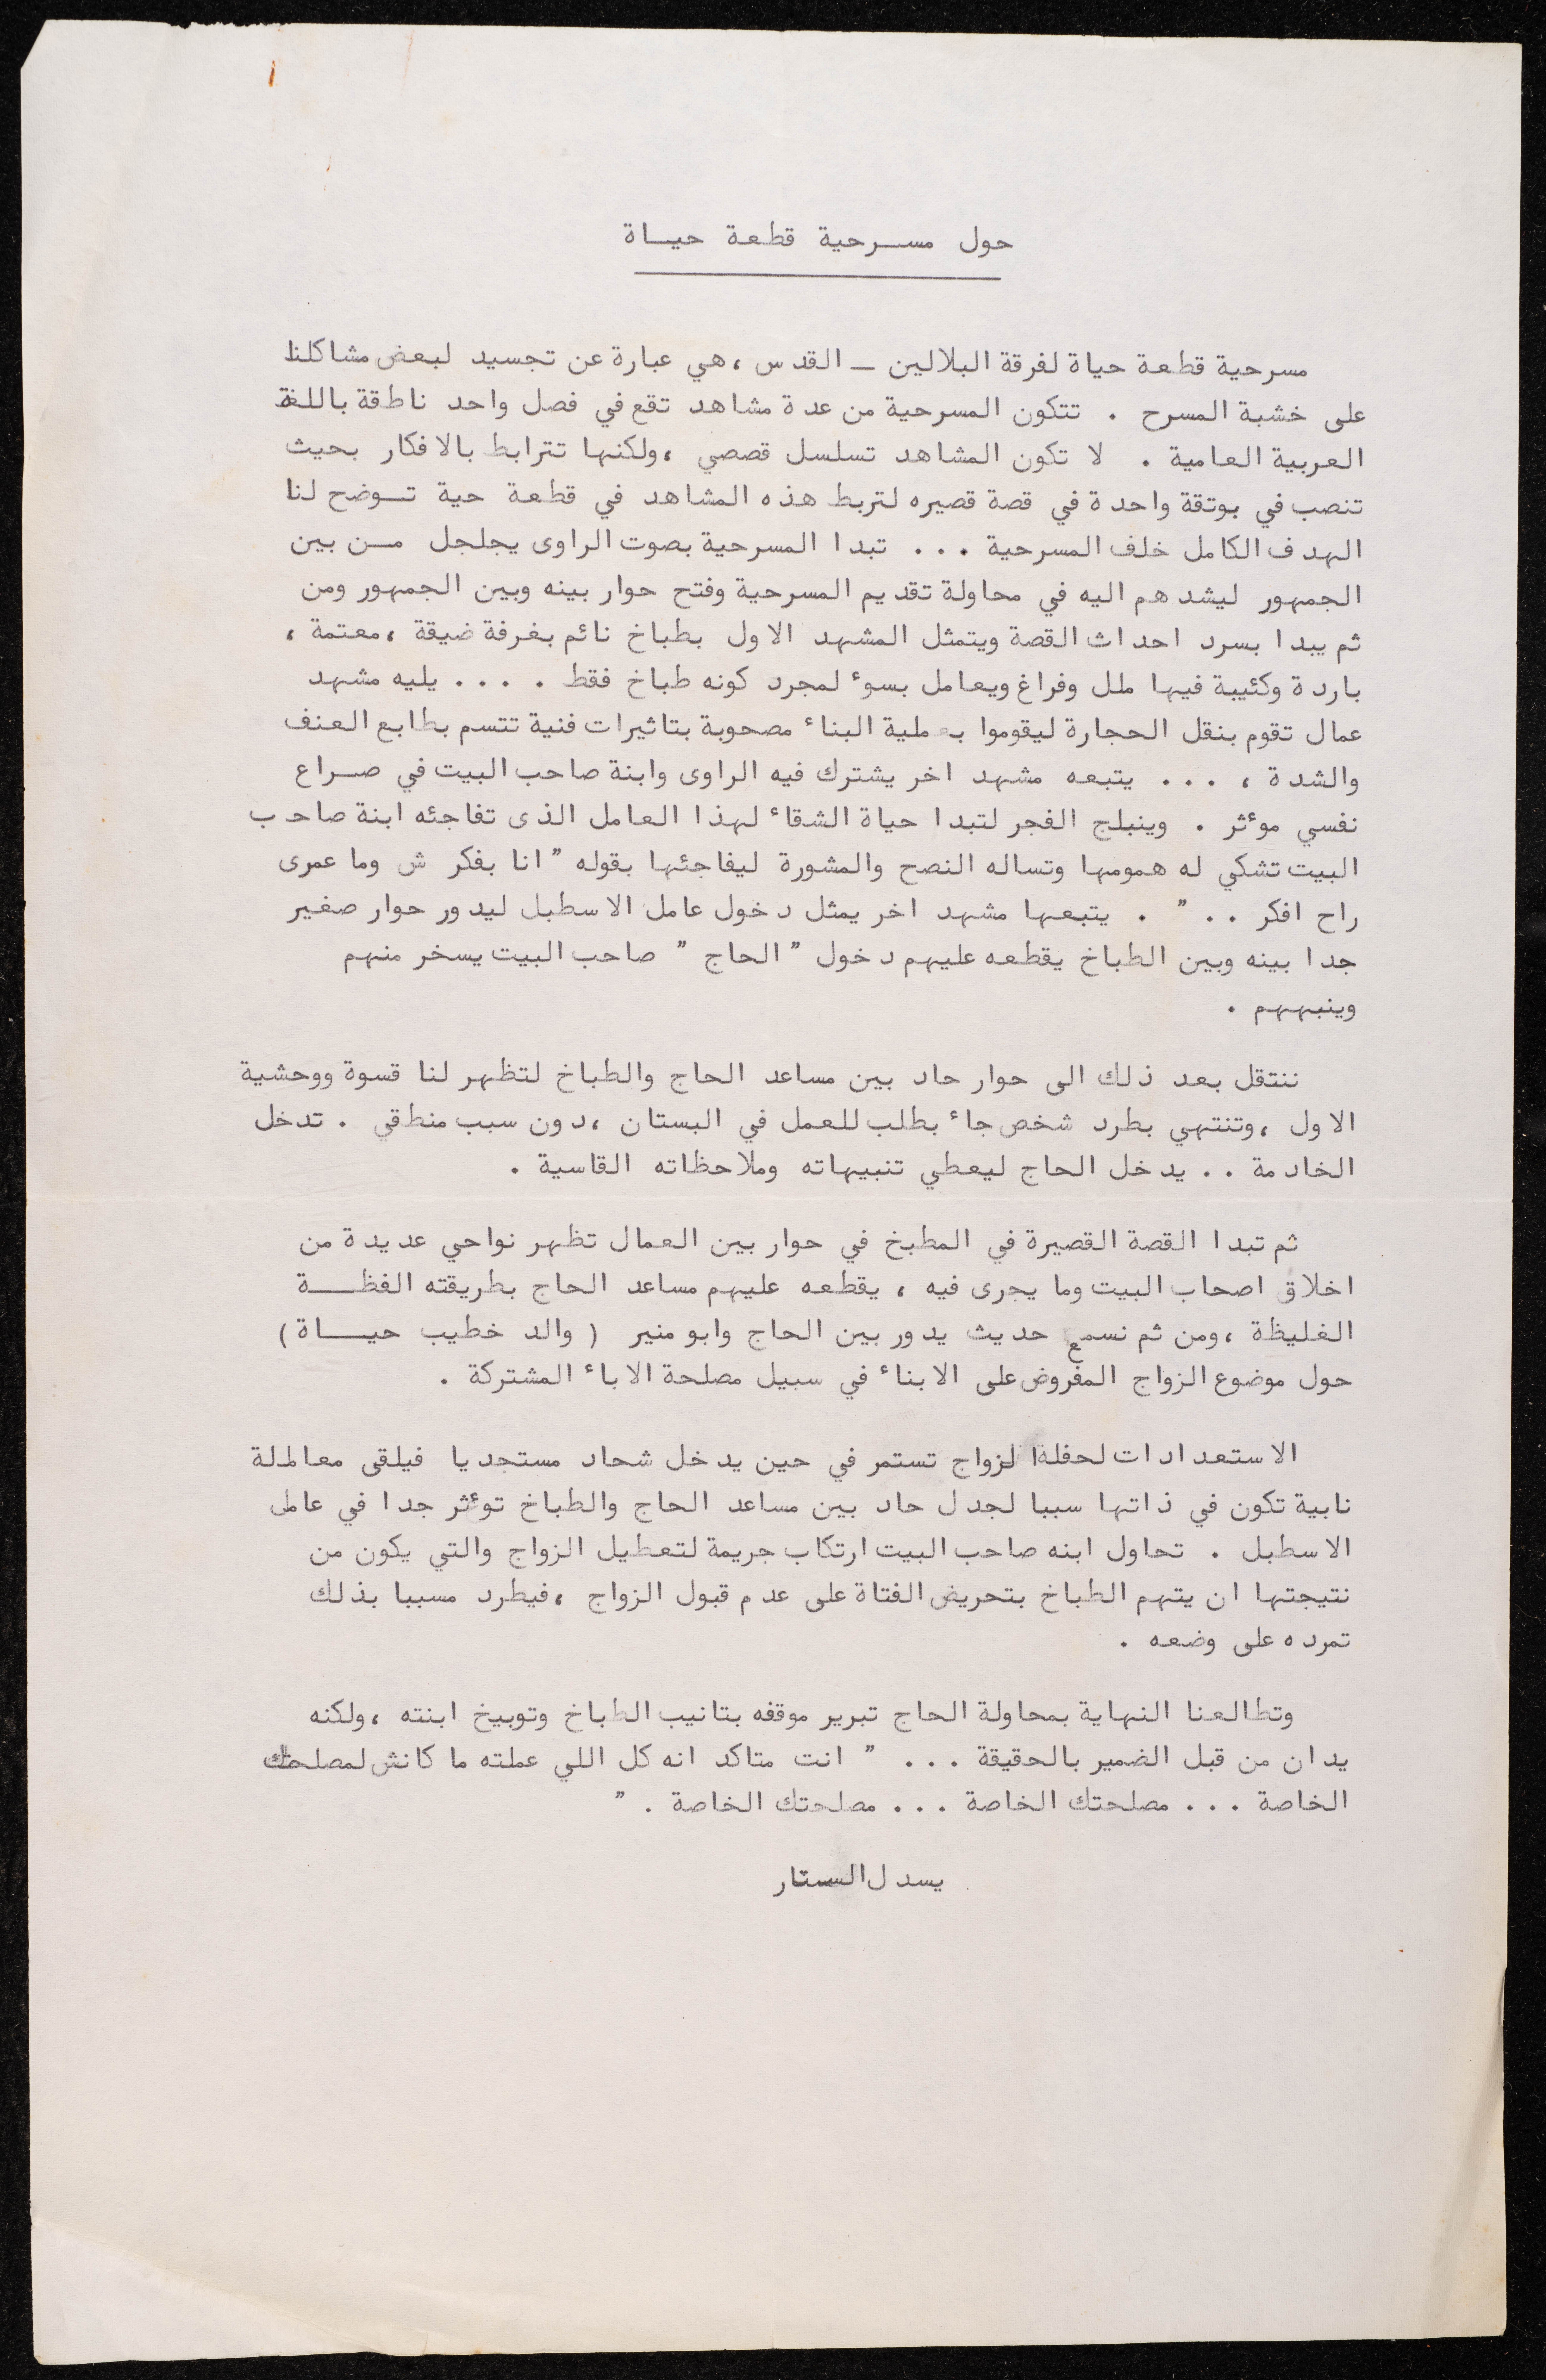 حول مسرحية قطعة حياة
مسرحية قطعة حياة لفرقة البلالين - القدس ، هي عبارة عن تجسيد لبعض مشاكلنا
على خشبة المسرح . تتكون المسرحية من عدة مشاهد تقع في فصل واحد ناطقة باللغة
العربية العامية . لا تكون المشاهد تسلسل قصصي ، ولكنها تترابط بالافكار بحيث
تنصب في بوتقة واحدة في قصة قصيره لتربط هذه المشاهد في قطعة حية توضح لنا
الهدف الكامل خلف المسرحية ... تبدا المسرحية بصوت الراوى يجلجل من بين
الجمهور ليشدهم اليه في محاولة تقديم المسرحية وفتح حوار بينه وبين الجمهور ومن
ثم يبدا بسرد احداث القصة ويتمثل المشهد الاول بطباخ نائم بغرفة ضيقة ، معتمة ،
باردة وكئيبة فيها ملل وفراغ ويعامل بسوء لمجرد كونه طباخ فقط . ... يليه مشهد
عمال تقوم بنقل الحجارة ليقوموا بعملية البناء مصحوبة بتاثيرات فنية تتسم بطابع العنف
والشدة ، ... يتبعه مشهد اخر يشترك فيه الراوى وابنة صاحب البيت في صراع
نفسي موءثر . وينبلج الفجر لتبدا حياة الشقاء لهذا العامل الذى تفاجئه ابنة صاحب
البيت تشكي له همومها وتساله النصح والمشورة ليفاجئها بقوله " انا بفكر ش وما عمرى
راح افكر .. " . يتبعها مشهد اخر يمثل دخول عامل الاسطبل ليدور حوار صغير
جدا بينه وبين الطباخ يقطعه عليهم دخول " الحاج " صاحب البيت يسخر منهم
وينبههم .
ننتقل بعد ذلك الى حوار حاد بين مساعد الحاج والطباخ لتظهر لنا قسوة ووحشية
الاول ، وتنتهي بطرد شخص جاء بطلب للعمل في البستان ، دون سبب منطقي . تدخل
الخادمة .. يدخل الحاج ليعطي تنبيهاته وملاحظاته القاسية .
ثم تبدا القصة القصيرة في المطبخ في حوار بين العمال تظهر نواحي عديدة من
اخلاق اصحاب البيت وما يجرى فيه ، يقطعه عليهم مساعد الحاج بطريقته الفظة
الغليظة ، ومن ثم نسمع حديث يدور بين الحاج وابو منير ( والد خطيب حياة )
حول موضوع الزواج المفروض على الابناء في سبيل مصلحة الاباء المشتركة .
الاستعدادات لحفلة الزواج تستمر في حين يدخل شحاد مستجديا فيلقى معاملة
نابية تكون في ذاتها سببا لجدل حاد بين مساعد الحاج والطباخ توءثر جدا في عامل
الاسطبل . تحاول ابنه صاحب البيت ارتكاب جريمة لتعطيل الزواج والتي يكون من
نتيجتها ان يتهم الطباخ بتحريض الفتاة على عدم قبول الزواج ، فيطرد مسببا بذلك
تمرده على وضعه .
وتطالعنا النهاية بمحاولة الحاج تبرير موقفه بتانيب الطباخ وتوبيخ ابنته ، ولكنه
يدان من قبل الضمير بالحقيقة ... " انت متاكد انه كل اللي عملته ما كانش لمصلحتك
الخاصة ... مصلحتك الخاصة ... مصلحتك الخاصة . "
يسدل الستار